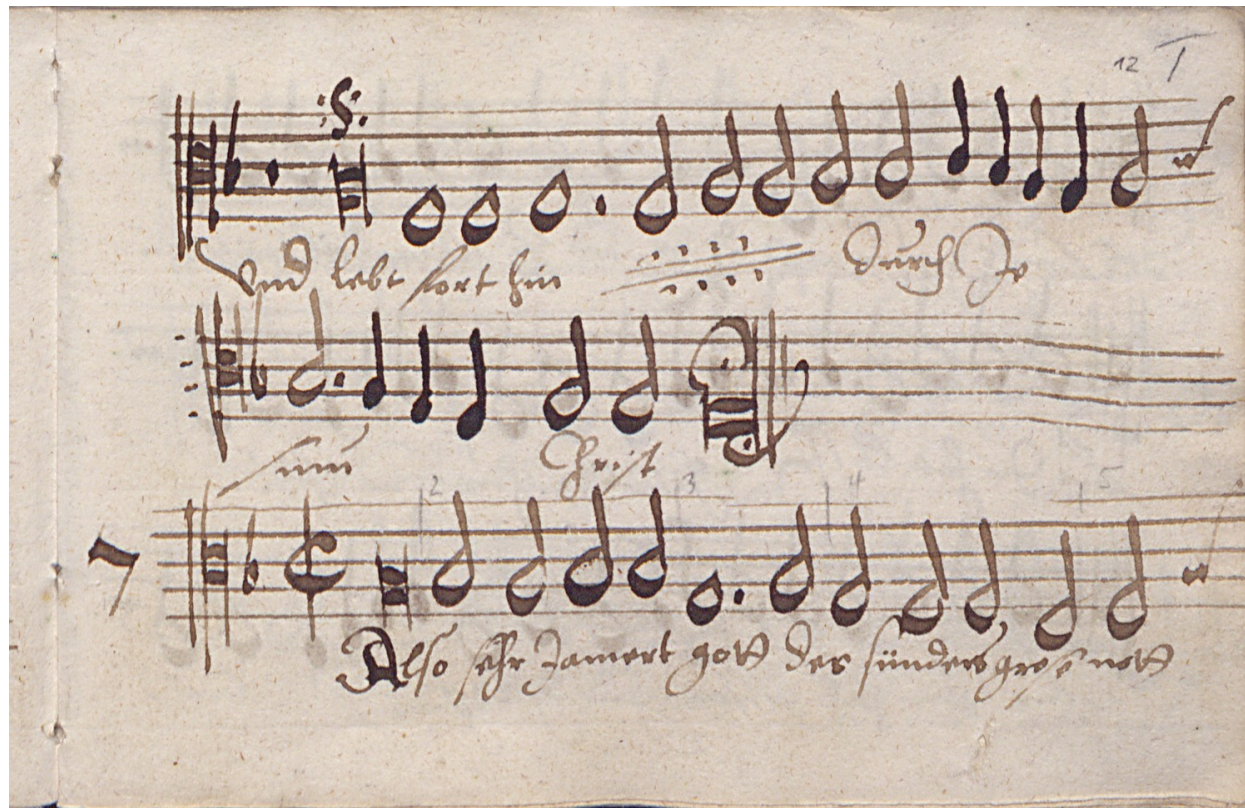 12 T
:S:
Und lebt fort hin durch Je
sum Christ
2 3 4 5
7
Also sehr Jamert gott des sünders groß nott